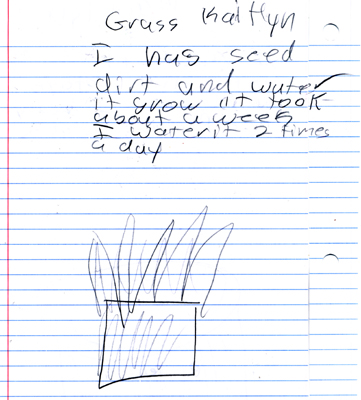 Grass Kaitlyn
I has seed
dirt and water
it grow it took
about a week
I water it 2 times
a day